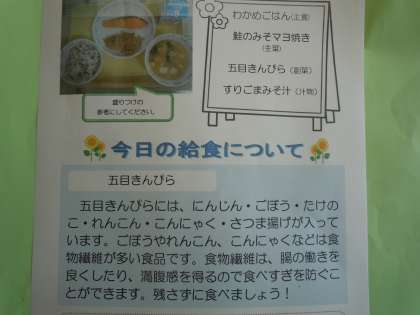 わかめごはん(主食)
鮭のみそマヨ焼き
(主菜)
五目きんぴら(副菜)
すりごまみそ汁(汁物)
盛りつけの
参考にしてください。
今日の給食について
五目きんぴら
五目きんぴらには、にんじん・ごぼう・たけの
こ・れんこん・こんにゃく・さつま揚げが入って
います。ごぼうやれんこん、こんにゃくなどは食
物繊維が多い食品です。食物繊維は、腸の働きを
良くしたり、満腹感を得るので食べすぎを防ぐこ
とができます。残さずに食べましょう!